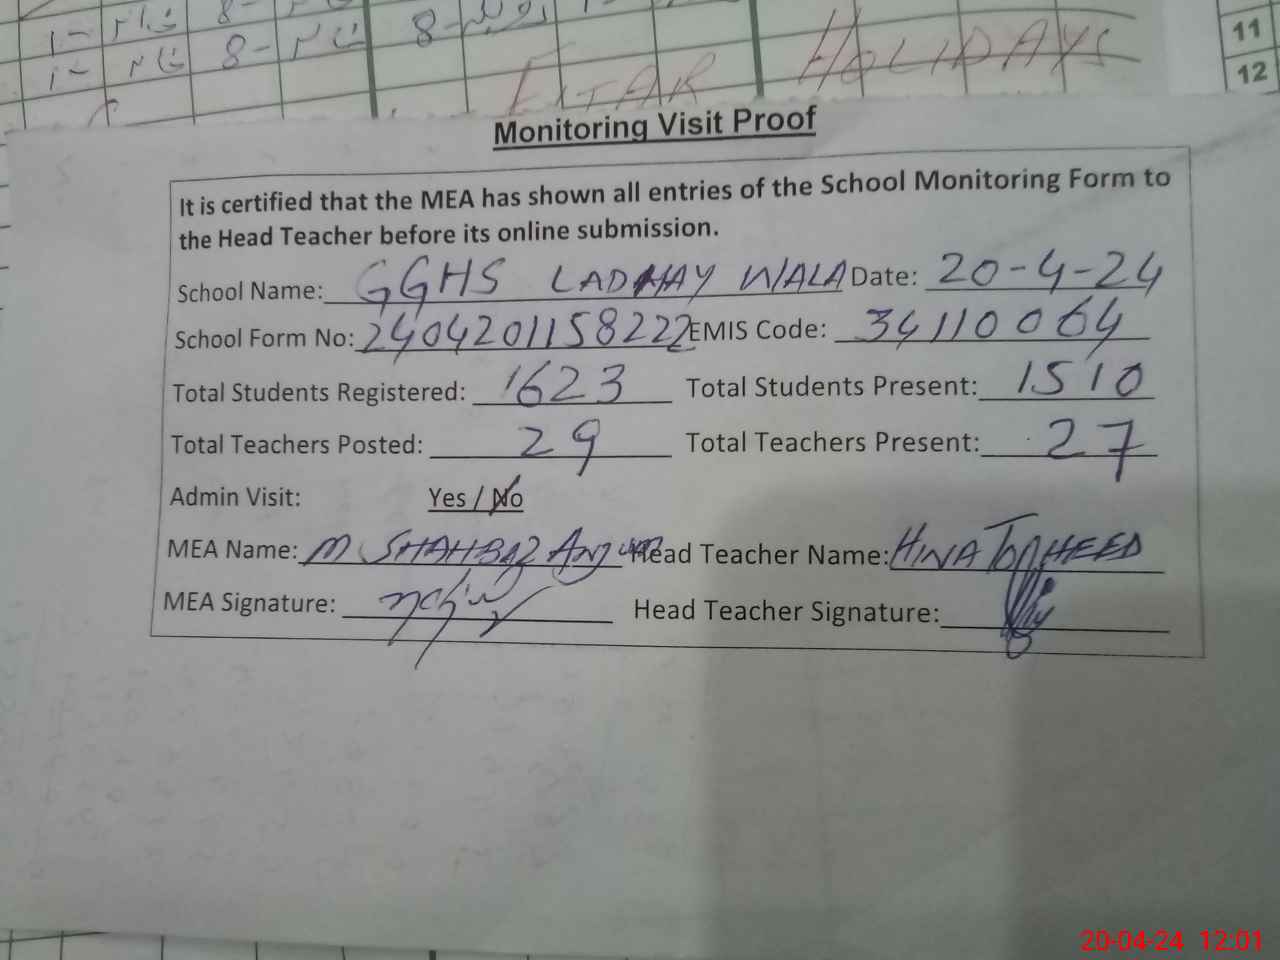 11
12
EITAR HOLIDAYS
Monitoring Visit Proof
It is certified that the MEA has shown all entries of the School Monitoring Form to
the Head Teacher before its online submission.
School Name: GGHS LADHAY WALA Date: 20-4-24
School Form No: 2404201158222 EMIS Code: 34110064
Total Students Registered: 1623 Total Students Present: 1510
Total Teachers Posted: 29 Total Teachers Present: 27
Admin Visit: Yes / No
MEA Name: M SHAHBAZ ANJUM Head Teacher Name: HINA TOAHEED
MEA Signature: Head Teacher Signature:
20-04-24 12:01